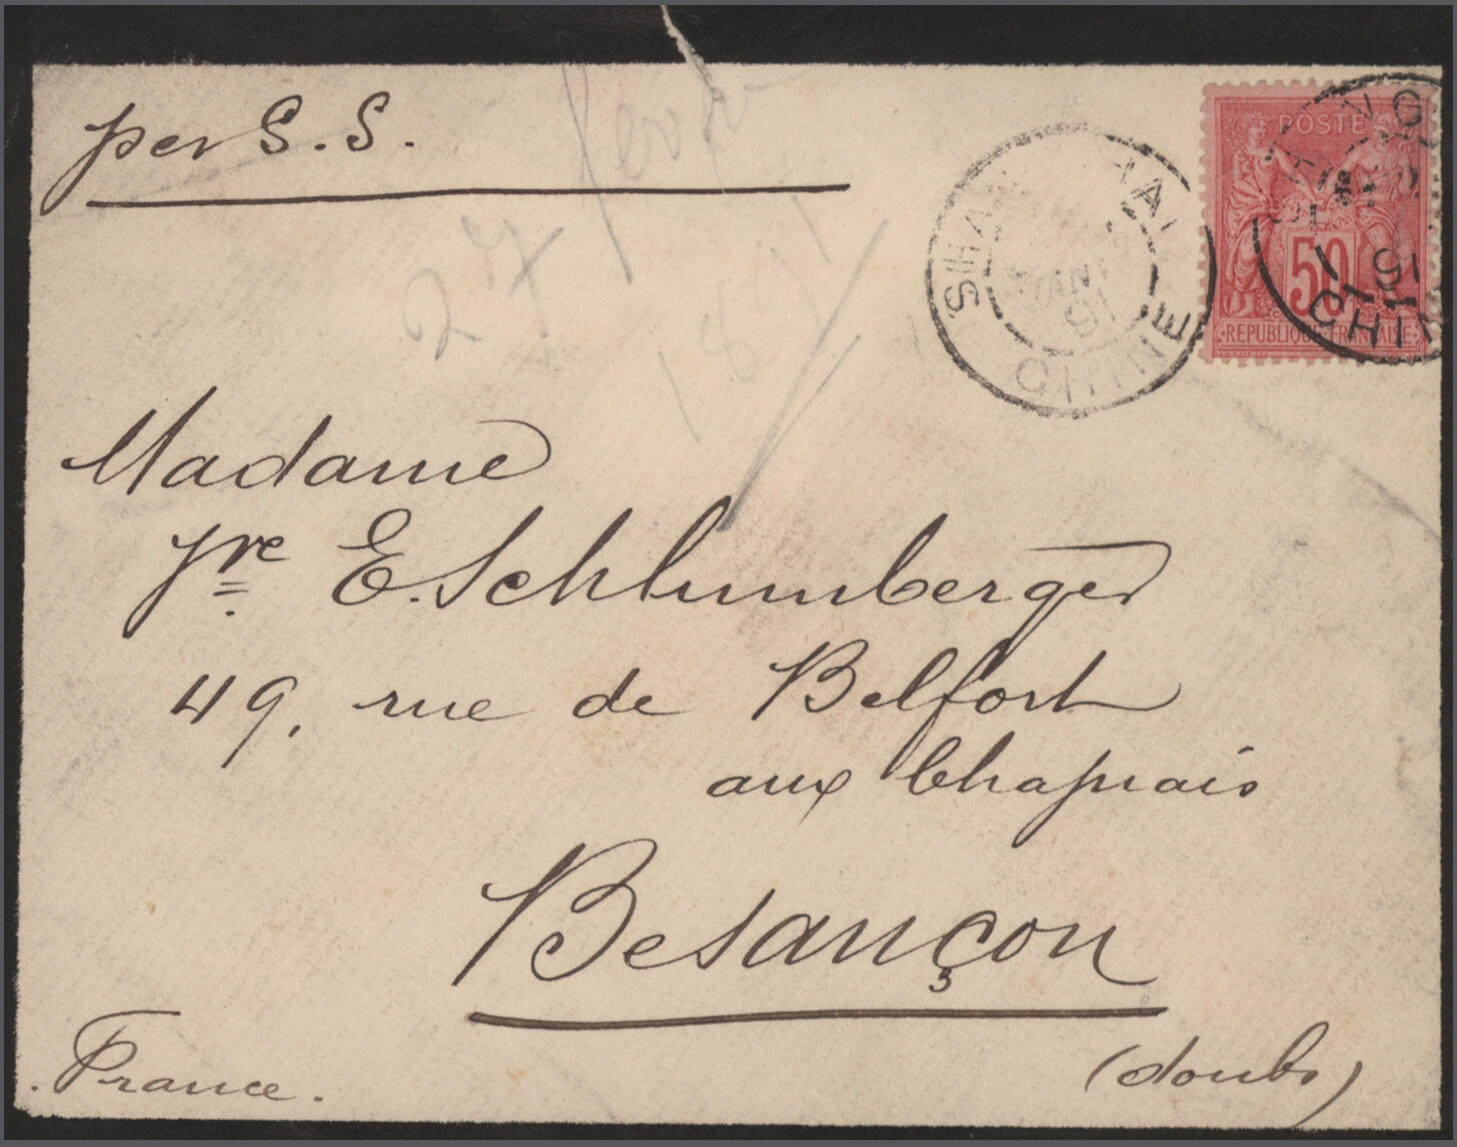 per S. S.
SHANG HAI
JANV
91
CHINE
POSTE
50
REPUBLIQUE FRANCAISE
91
CHIN
27
1891
Madame
Jre E. Schlumberger
49, rue de Belfort
aux Chaprais
Besançon
(doubs)
France.